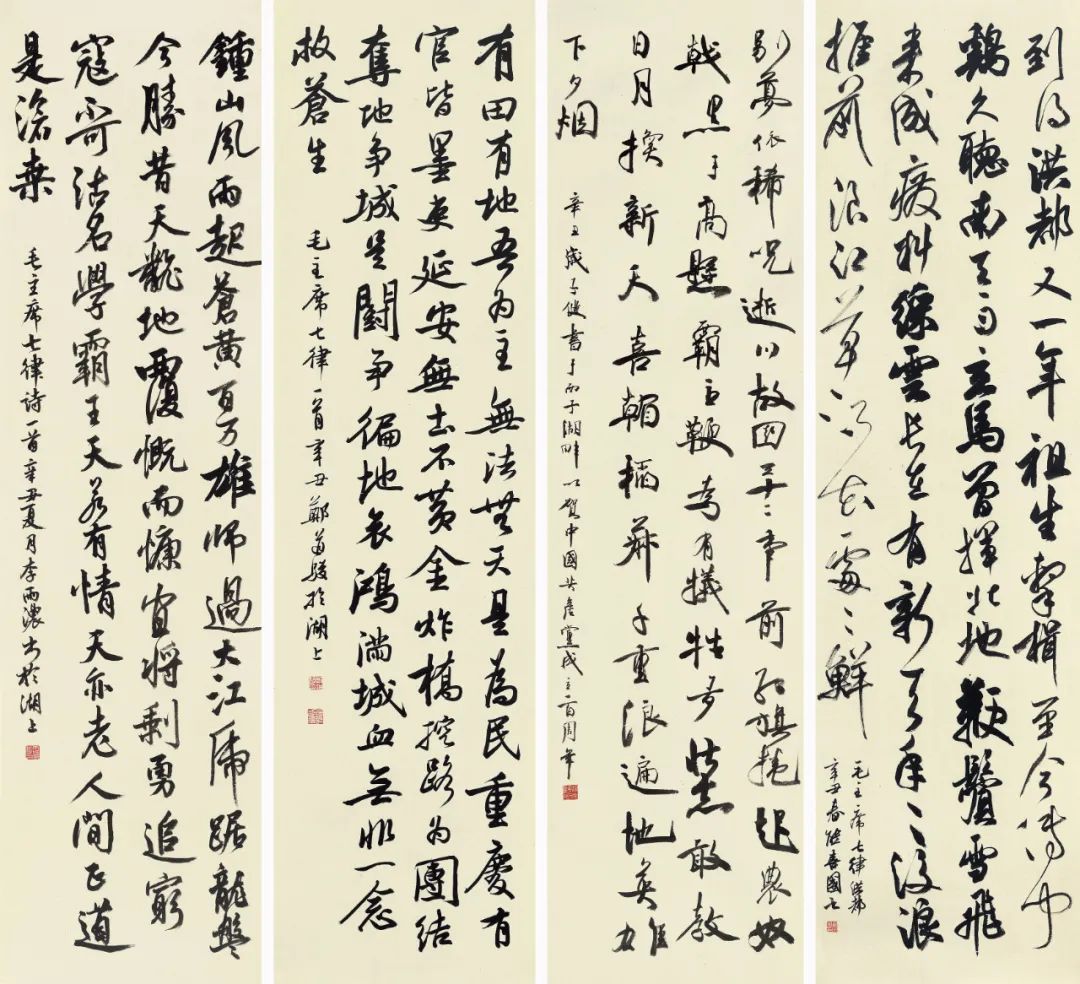 到得洪都又一年祖生擊楫至今傳聞
鷄久聽南天雨立馬曾揮北地鞭鬢雪飛
来成廢料綵雲長在有新天年〻後浪
推前浪江草江花處〻鮮
毛主席七律洪都
辛丑春國书
别夢依稀咒逝川故园三十二年前紅旗捲起農奴
戟黑手高懸霸主鞭為有犧牲多壯志敢教
日月換新天喜看稻菽千重浪遍地英雄
下夕烟
辛丑歲子健書于西子湖畔以賀中國共產黨成立百周年
有田有地吾为主無法無天是為民重慶有
官皆墨吏延安無土不黄金炸橋挖路为團結
奪地争城是鬭争徧地哀鴻滿城血無非一念
救蒼生
毛主席七律一首辛丑鄭於湖上
鍾山風雨起蒼黄百万雄師過大江虎踞龍盤
今勝昔天翻地覆慨而慷宜將剩勇追窮
寇不可沽名學霸王天若有情天亦老人間正道
是滄桑
毛主席七律詩一首辛丑夏月李雨濃书於湖上